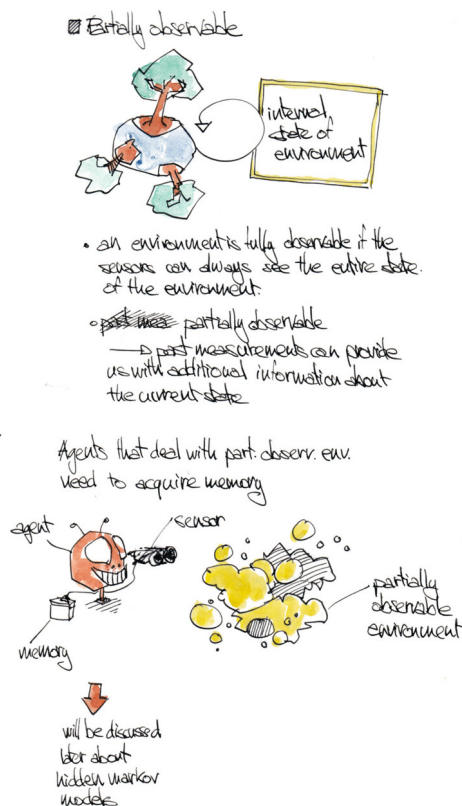 Partially observable
internal
state of
environment
• an environment is fully observable if the
sensors can always see the entire state.
of the environment.
partially observable
past measurements can provide
us with additional information about
the current state
Agents that deal with part. observ. env.
need to acquire memory
agent
sensor
partially
observable
environment
memory
will be discussed
later about
hidden markov
models